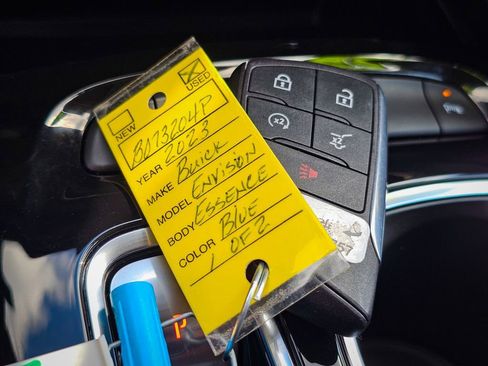 USED
NEW
BA73204P
YEAR 2023
MAKE BUICK
MODEL ENVISION
BODY ESSENCE
COLOR BLUE
1 OF 2
x2
x2
P